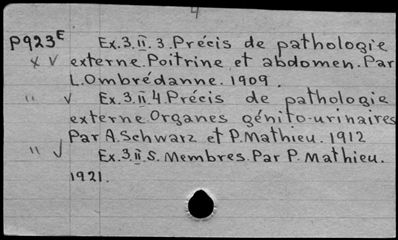 4
P923E Ex.3.II.3.Précis de pathologie
x v externe.Poitrine et abdomen.Par
L.Ombrédanne.1909.
" v Ex.3.II.4.Précis de pathologie
externe.Organes génito-urinaires
Par A.Schwarz et P.Mathieu.1912
" √ Ex.3.II.5.Membres.Par P.Mathieu.
1921.